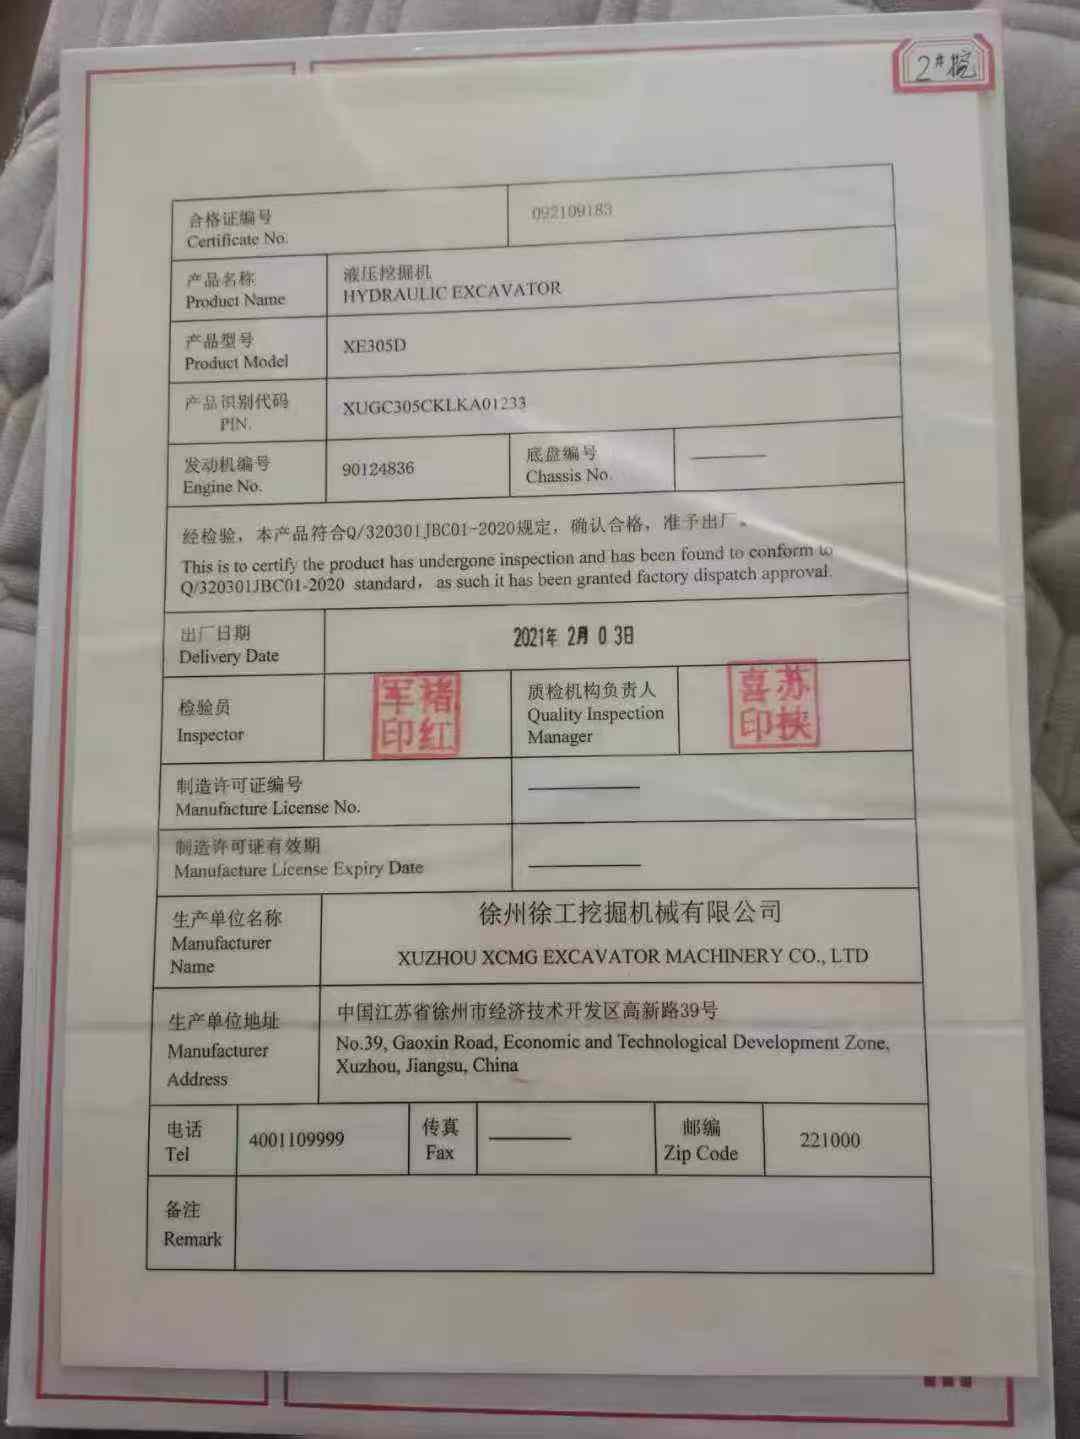 2#挖
合格证编号
Certificate No.
092109183
产品名称
Product Name
液压挖掘机
HYDRAULIC EXCAVATOR
产品型号
Product Model
XE305D
产品识别代码
PIN.
XUGC305CKLKA01233
发动机编号
Engine No.
90124836
底盘编号
Chassis No.
经检验，本产品符合Q/320301JBC01-2020规定，确认合格，准予出厂。
This is to certify the product has undergone inspection and has been found to conform to
Q/320301JBC01-2020 standard， as such it has been granted factory dispatch approval.
出厂日期
Delivery Date
2021年 2月 0 3日
检验员
Inspector
褚红军印
质检机构负责人
Quality Inspection
Manager
苏挟喜印
制造许可证编号
Manufacture License No.
制造许可证有效期
Manufacture License Expiry Date
生产单位名称
Manufacturer
Name
徐州徐工挖掘机械有限公司
XUZHOU XCMG EXCAVATOR MACHINERY CO., LTD
生产单位地址
Manufacturer
Address
中国江苏省徐州市经济技术开发区高新路39号
No.39, Gaoxin Road, Economic and Technological Development Zone,
Xuzhou, Jiangsu, China
电话
Tel
4001109999
传真
Fax
邮编
Zip Code
221000
备注
Remark